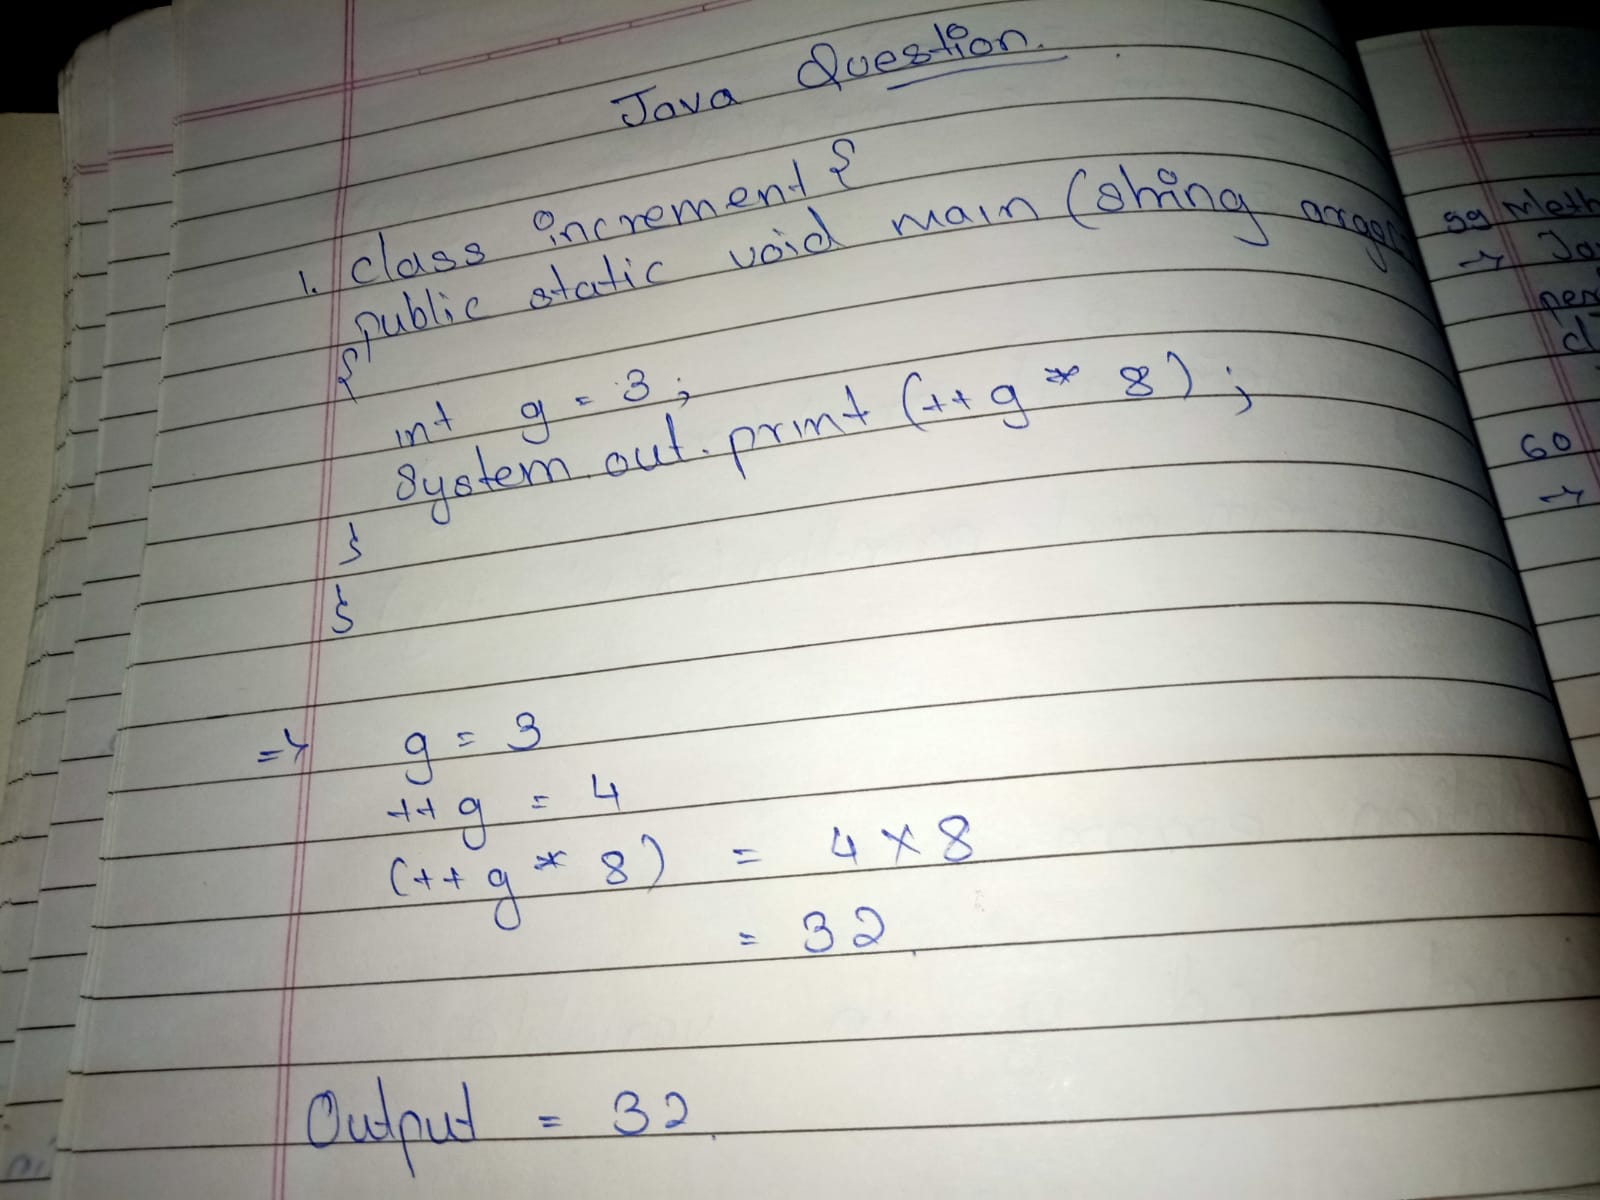 Java Question.
1. class increment {
public static void main (string args
{
int g = 3;
System.out.print (++g * 8);
}
}
=> g = 3
++g = 4
(++g * 8) = 4 × 8
= 32
Output = 32
59 Meth
→ Ja
per
cl
60
→